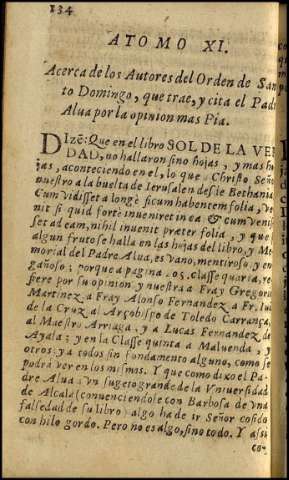 134
ATOMO XI.
Acerca de los Autores del Orden de San
to Domingo, que trae, y cita el Padre
Alua por la opinion mas Pia.
DIzē: Que en el libro SOL DE LA VER
DAD, no hallaron sino hojas, y mas ho
jas, aconteciendo en el, lo que a Christo Señor
nuestro a la buelta de Ierusalen desde Bethania,
Cum vidisset a longè ficum habentem folia, ve
nit si quid fortè inueniret in ea & cum venis
set ad eam, nihil inuenit præter folia, y que si
algun fruto se halla en las hojas del libro, y Me
morial del Padre Alua, es vano, mentiroso, y en
gañoso; porque a pagina 105. classe quarta, re
fiere por su opinion y nuestra a Fray Gregorio
Martinez, a Fray Alonso Fernandez, a Fr. Luis
de la Cruz, al Arçobispo de Toledo Carrança,
al Maestro Arriaga, y a Lucas Fernandez de
Ayala; y en la Classe quinta a Maluenda, y
otros: y a todos sin fundamento alguno, como se
podrà ver en los mismos. Y que como dixo el Pa
dre Alua: vn sugeto grande de la Vniuersidad
de Alcalà (conuenciendole con Barbosa de vna
falsedad de su libro) algo ha de ir Señor cosido
con hilo gordo. Pero no es algo, sino todo. Y assi
co-